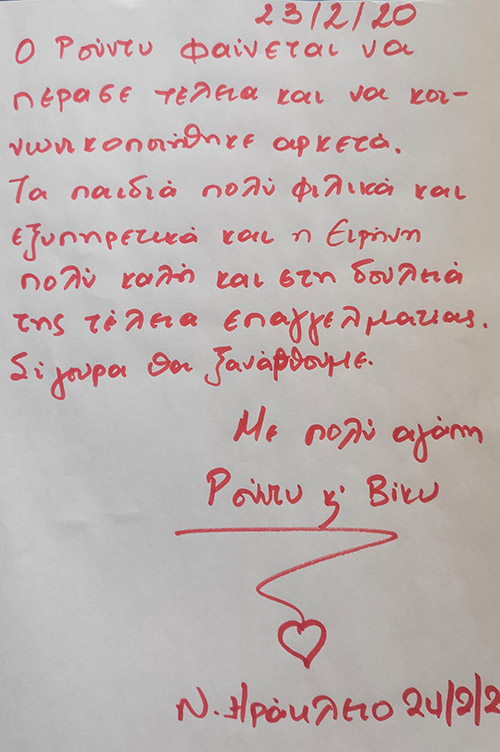 23/2/20
Ο Ρούντυ φαίνεται να
πέρασε τέλεια και να κοι-
νωνικοποιήθηκε αρκετά.
Τα παιδιά πολύ φιλικά και
εξυπηρετικά και η Ειρήνη
πολύ καλή και στη δουλειά
της τέλεια επαγγελματίας.
Σίγουρα θα ξανάρθουμε.
Με πολύ αγάπη
Ρούντυ κ' Βίκυ
Ν. Ηράκλειο 24/2/2